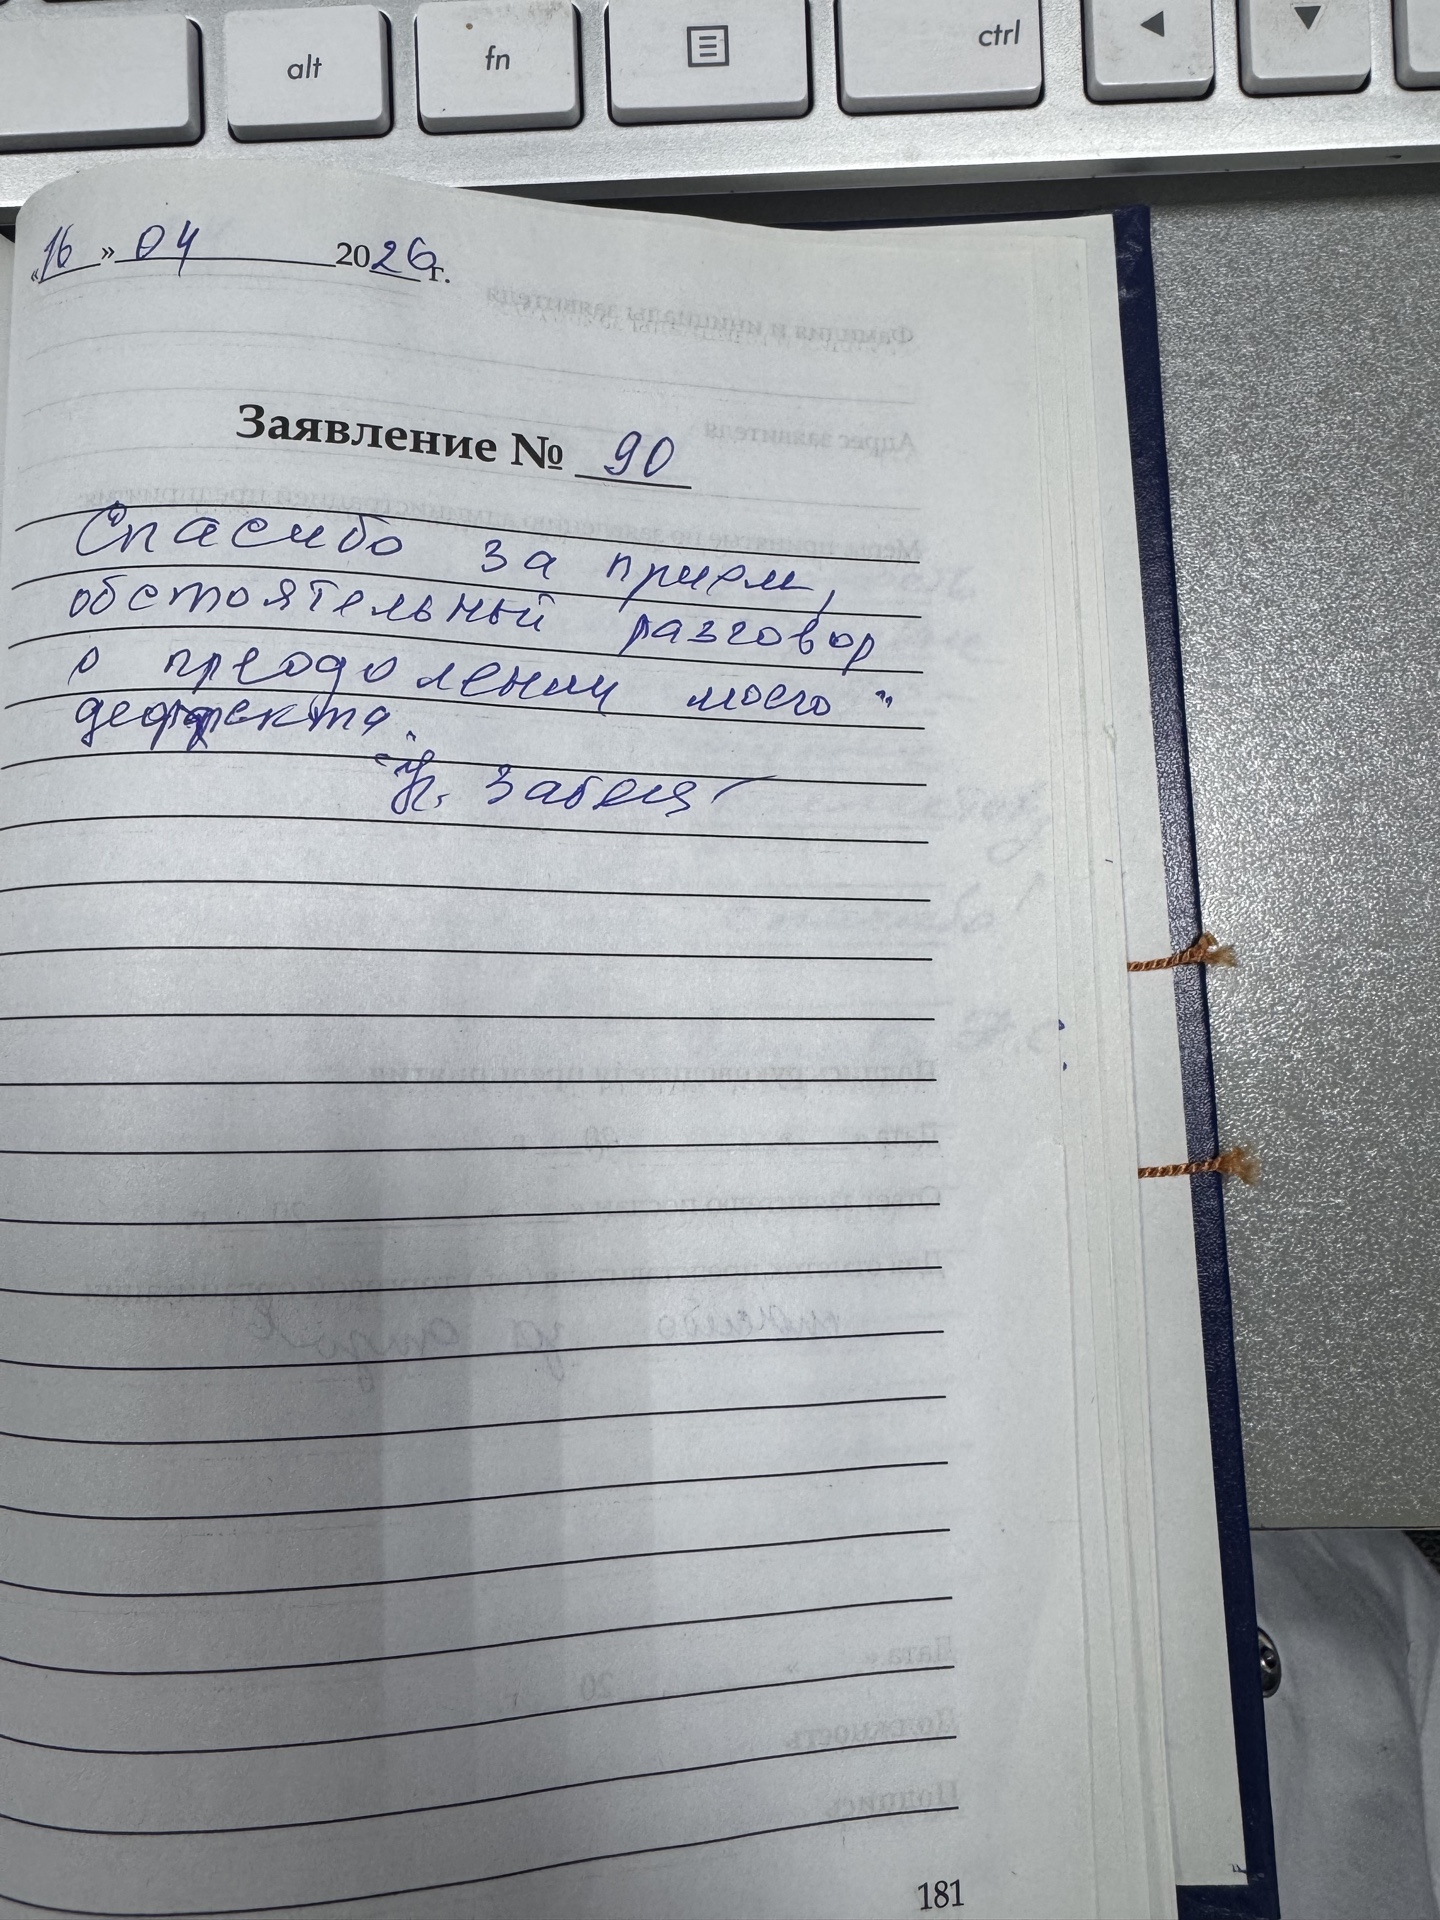 alt fn ctrl
«16» 04 2026 г.
Заявление № 90
Спасибо за прием,
обстоятельный разговор
о преодолении моего "
деффекта."
181